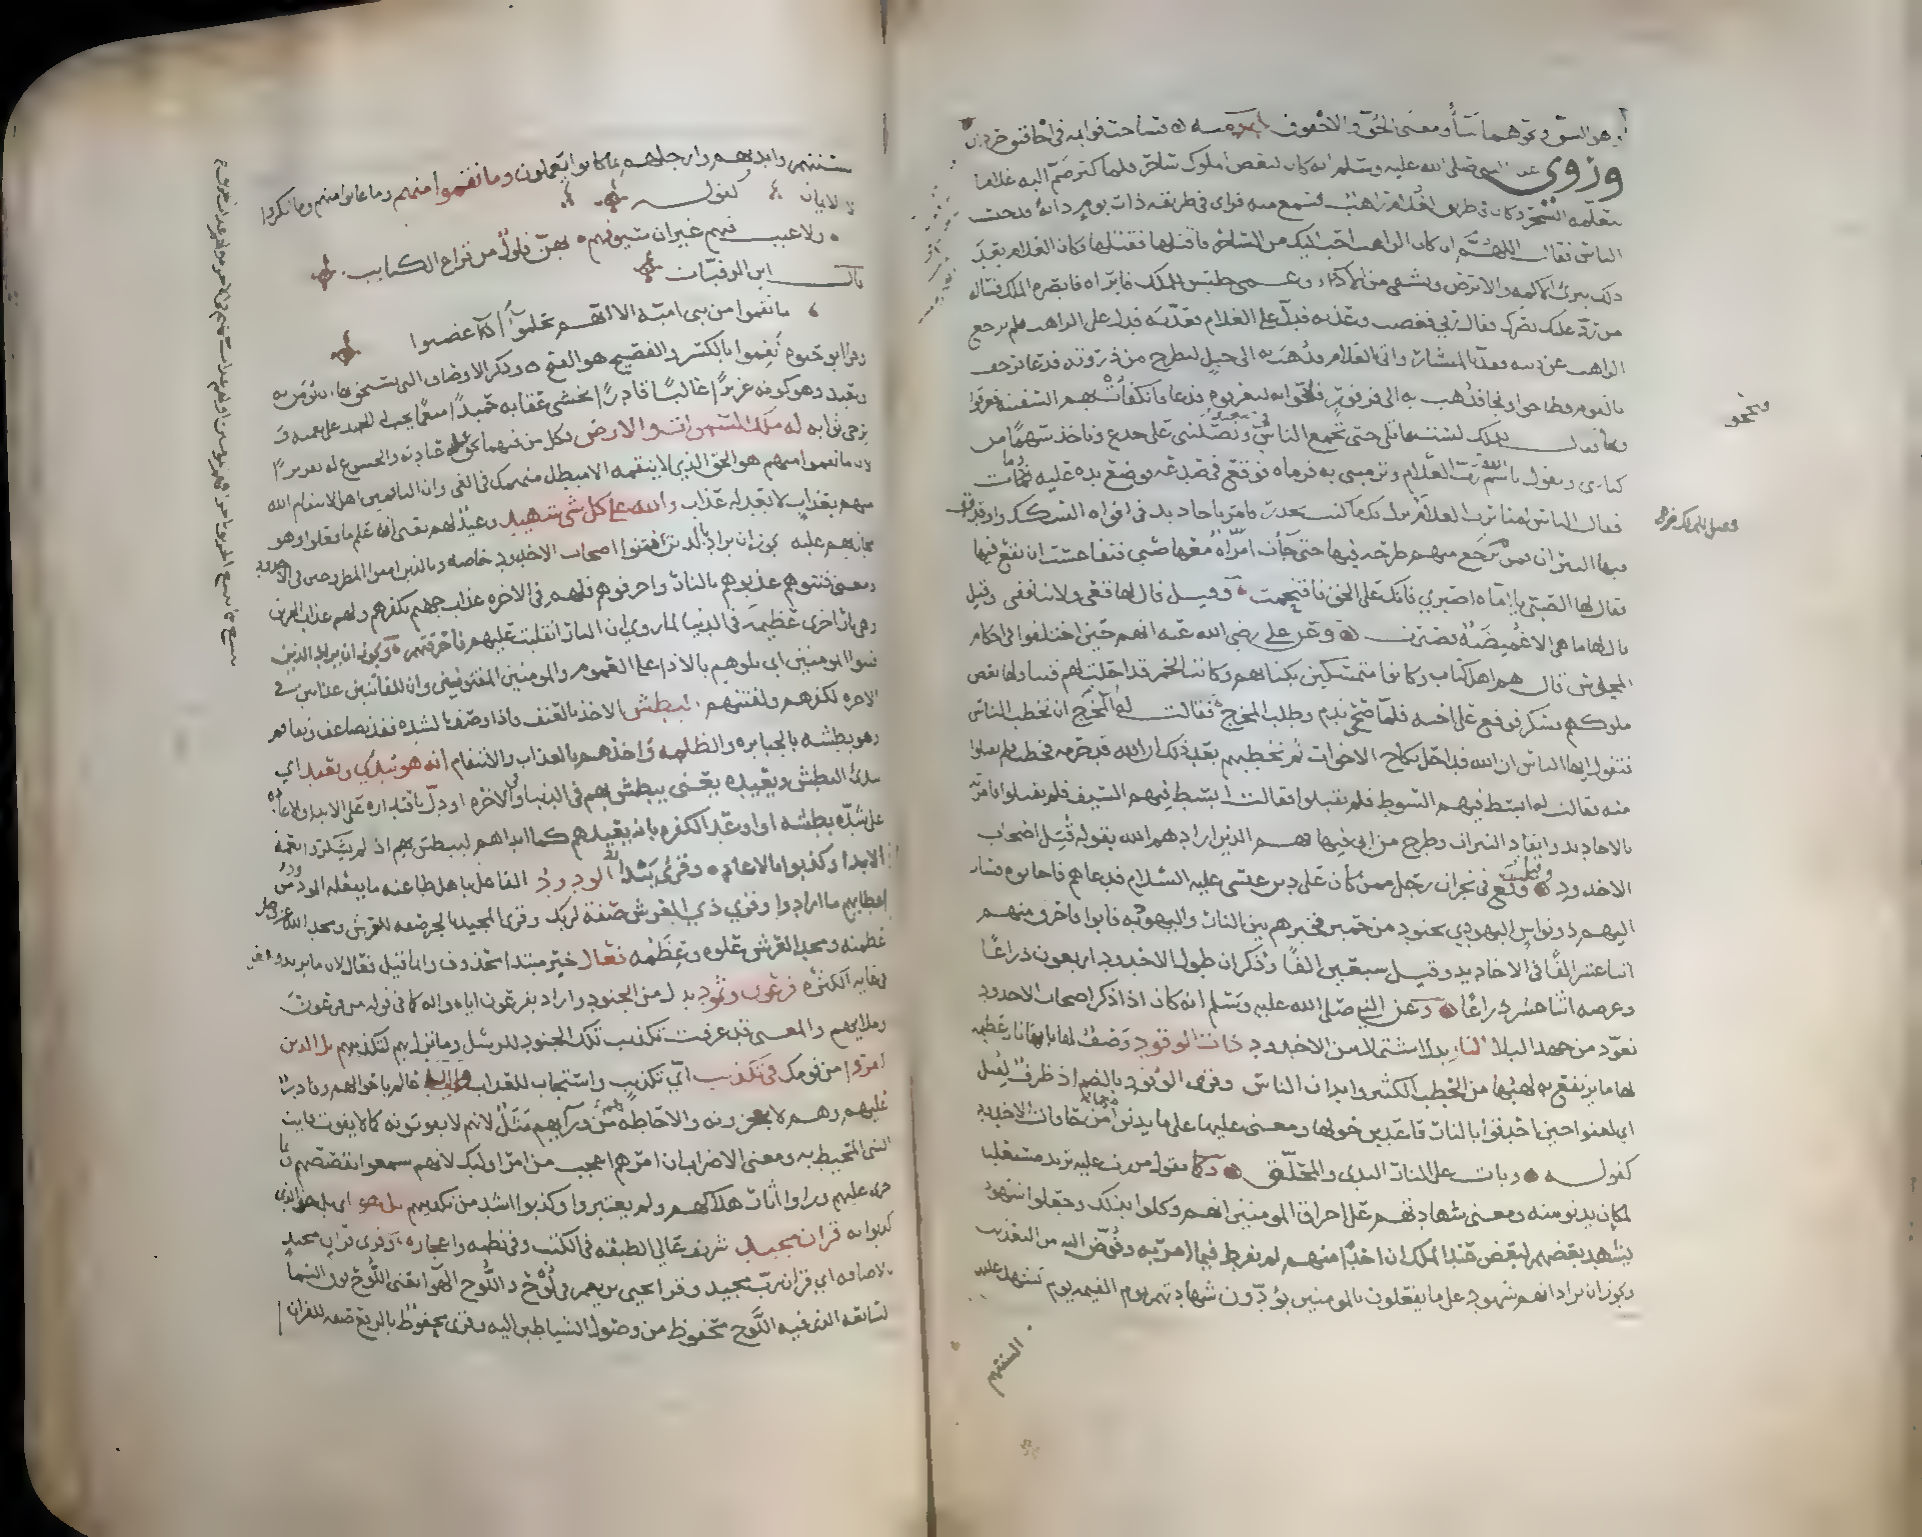 وروي عن النبي صلى الله عليه وسلم انه كان لبعض الملوك ساحر فلما كبر ضم اليه غلاما
يعلمه السحر وكان في طريق الغلام راهب فسمع منه فراى في طريقه ذات يوم دابة قد حبست
الناس فقال اللهم ان كان الراهب احب اليك من الساحر فاقتلها فقتلها فكان الغلام بعد
ذلك يبرئ الاكمه والابرص ويشفي من الادواء وعمي جليس للملك فابراه فابصره الملك فساله
من رد عليك بصرك فقال ربي فغضب فعذبه فدل على الغلام فعذبه فدل على الراهب فلم يرجع
الراهب عن دينه فقد بالمنشار وابى الغلام فذهب به الى جبل ليطرح من ذروته فدعا فرجف
بالقوم فطاحوا ونجا فذهب به الى قرقور فلججوا به ليغرقوه فدعا فانكفأت بهم السفينة فغرقوا
ونجا وقال للملك لست بقاتلي حتى تجمع الناس في صعيد وتصلبني على جذع وتاخذ سهما من
كنانتي وتقول باسم الله رب الغلام ثم ترميني به فرماه فوقع في صدغه فوضع يده عليه ومات
فقال الناس امنا برب الغلام فقيل للملك نزل بك ما كنت تحذر فامر باخاديد في افواه السكك واوقدت
فيها النيران فمن لم يرجع منهم طرحه فيها حتى جات امراة معها صبي فتقاعست ان تقع فيها
فقال لها الصبي يا اماه اصبري فانك على الحق فاقتحمت وقيل قال لها قعي ولا تنافقي وقيل
قال لها ما هي الا غميضة فصبرت وعن علي رضي الله عنه انهم حين اختلفوا في احكام
المجوس قال هم اهل كتاب وكانوا متمسكين بكتابهم وكانت الخمر قد احلت لهم فتناولها بعض
ملوكهم فسكر فوقع على اخته فلما صحى ندم وطلب المخرج فقالت له المخرج ان تخطب الناس
فتقول ايها الناس ان الله قد احل نكاح الاخوات ثم تخطبهم بعد ذلك ان الله قد حرمه فخطب فلم يقبلوا
منه فقالت له ابسط فيهم السوط فلم يقبلوا فقالت ابسط فيهم السيف فلم يقبلوا فامرته
بالاخاديد وايقاد النيران وطرح من ابى فيها فهم الذين ارادهم الله بقوله قتل اصحاب
الاخدود وقيل وقع في نجران رجل ممن كان على دين عيسى عليه السلام فدعاهم فاجابوه فسار
اليهم ذو نواس اليهودي بجنود من حمير فخيرهم بين النار واليهودية فابوا فاحرق منهم
اثنا عشر الفا في الاخاديد وقيل سبعين الفا وذكر ان طول الاخدود اربعون ذراعا
وعرضه اثنا عشر ذراعا وعن النبي صلى الله عليه وسلم انه كان اذا ذكر اصحاب الاخدود
تعوذ من جهد البلاء النار بدل اشتمال من الاخدود ذات الوقود وصف لها بانها نار عظيمة
لها ما يرتفع به لهبها من الحطب الكثير وابدان الناس وقرئ الوقود بالضم اذ ظرف لقتل
اي لعنوا حين احدقوا بالنار قاعدين حولها ومعنى عليها على ما يدنو منها من حافات الاخدود
كقوله وبات على النار الندى والمحلق وكما تقول مررت عليه تريد مستعليا
لمكان يدنو منه ومعنى شهادتهم على احراق المومنين انهم وكلوا بذلك وجعلوا شهودا
يشهد بعضهم لبعض عند الملك ان احدا منهم لم يفرط فيما امر به وفوض اليه من التعذيب
ويجوز ان يراد انهم شهود على ما يفعلون بالمومنين يؤدون شهادتهم يوم القيمة يوم تشهد عليهم
السنتهم
السنتهم وايديهم وارجلهم بما كانوا يعملون وما نقموا منهم وما عابوا منهم وما انكروا
الا الايمان كقوله
ولا عيب فيهم غير ان سيوفهم بهن فلول من قراع الكتايب
قال ابن الرقيات
ما نقموا من بني امية الا انهم يحلمون ان غضبوا
وقرا ابو حيوة نقموا بالكسر والفصيح هو الفتح وذكر الاوصاف التي يستحق بها ان يومن به
ويعبد وهو كونه عزيزا غالبا قادرا يخشى عقابه حميدا منعما يجب له الحمد على نعمته و
يرجى ثوابه له ملك السموات والارض فكل من فيهما يحق عليه عبادته والخشوع له تقريرا
لان ما نقموا منهم هو الحق الذي لا ينقمه الا مبطل منهمك في الغي وان الناقمين اهل لانتقام الله
منهم بعذاب لا يعدله عذاب والله على كل شي شهيد وعيد لهم يعني انه علم ما فعلوا وهو
مجازيهم عليه يجوز ان يراد بالذين فتنوا اصحاب الاخدود خاصة وبالذين امنوا المطروحين في الاخدود
ومعنى فتنوهم عذبوهم بالنار واحرقوهم فلهم في الاخرة عذاب جهنم بكفرهم ولهم عذاب الحريق
وهي نار اخرى عظيمة في الدنيا لما روي ان النار انقلبت عليهم فاحرقتهم ويجوز ان يراد الذين
فتنوا المومنين اي بلوهم بالاذا على العموم والمومنين المفتونين وان للفاتنين عذابين في
الاخرة لكفرهم ولفتنتهم البطش الاخذ بالعنف فاذا وصف بالشدة فقد تضاعف وتفاقم
وهو بطشه بالجبابرة والظلمة واخذهم بالعذاب والانتقام انه هو يبدئ ويعيد اي
يبدئ البطش ويعيده يعني يبطش بهم في الدنيا وفي الاخرة او دل باقتداره على الابداء والاعادة
على شدة بطشه او اوعد الكفرة بانه يعيدهم كما ابداهم ليبطش بهم اذ لم يشكروا نعمة
الابداء وكذبوا بالاعادة وقرئ يبدا الودود الفاعل باهل طاعته ما يفعله الودود
من اعطائهم ما ارادوا وقرئ ذي العرش صفة لربك وقرئ المجيد بالجر صفة للعرش ومجد الله عز وجل
عظمته ومجد العرش علوه وعظمه فعال خبر مبتدا محذوف وانما قيل فعال لان ما يريد ويفعل
في غاية الكثرة فرعون وثمود بدل من الجنود واراد بفرعون اياه واله كما في قوله من فرعون
وملايهم والمعنى قد عرفت تكذيب تلك الجنود للرسل وما نزل بهم لتكذيبهم بل الذين
كفروا من قومك في تكذيب اي تكذيب واستيجاب للعذاب والله عالم باحوالهم وقادر
عليهم وهم لا يعجزونه والاحاطة بهم من ورآئهم مثل لانهم لا يفوتونه كما لا يفوت فايت
الشي المحيط به ومعنى الاضراب ان امرهم اعجب من امر اوليك لانهم سمعوا بقصصهم وما
جرى عليهم وراوا اثار هلاكهم ولم يعتبروا وكذبوا اشد من تكذيبهم بل هو اي بل هذا الذي
كذبوا به قران مجيد شريف عالي الطبقة في الكتب وفي نظمه واعجازه وقرئ قران مجيد
بالاضافة اي قران رب مجيد وقرا يحيى بن يعمر في لوح واللوح الهواء يعني اللوح فوق السماء
السابعة الذي فيه اللوح محفوظ من وصول الشياطين اليه وقرئ محفوظ بالرفع صفة للقران